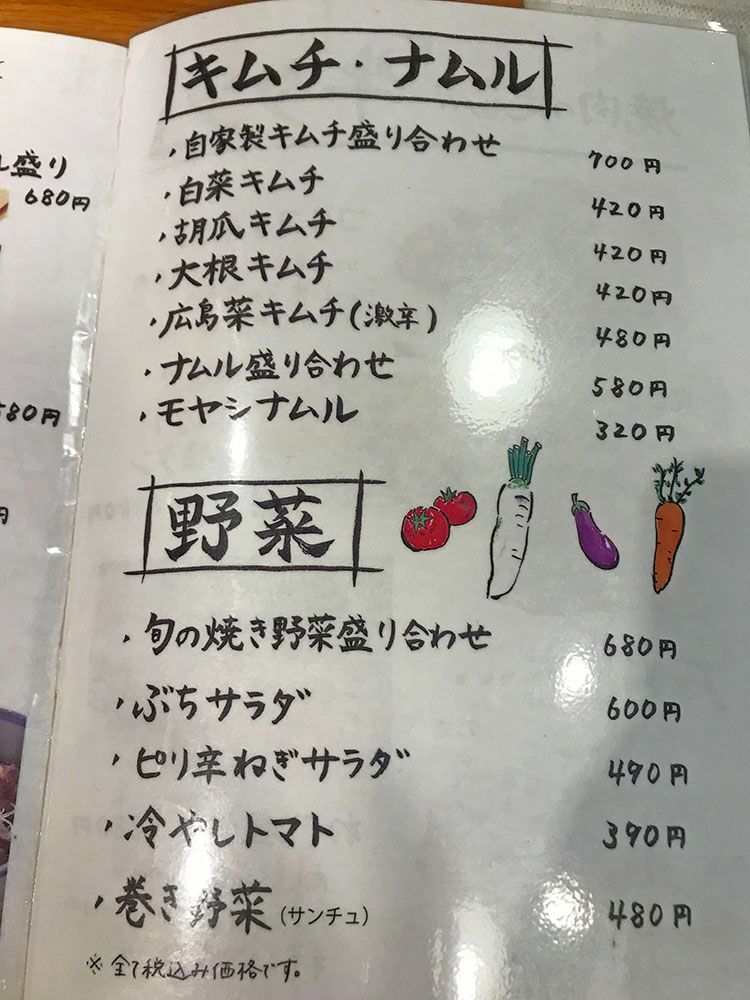 し盛り
680円
580円
円
キムチ・ナムル
・自家製キムチ盛り合わせ 700円
・白菜キムチ 420円
・胡瓜キムチ 420円
・大根キムチ 420円
・広島菜キムチ(激辛) 480円
・ナムル盛り合わせ 580円
・モヤシナムル 320円
野菜
・旬の焼き野菜盛り合わせ 680円
・ぶちサラダ 600円
・ピリ辛ねぎサラダ 490円
・冷やしトマト 390円
・巻き野菜(サンチュ) 480円
※全て税込み価格です。